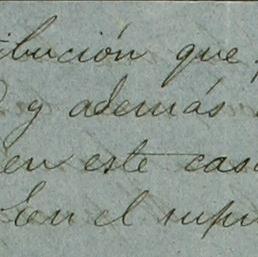 ibución que
y además
en este cas
En el supu